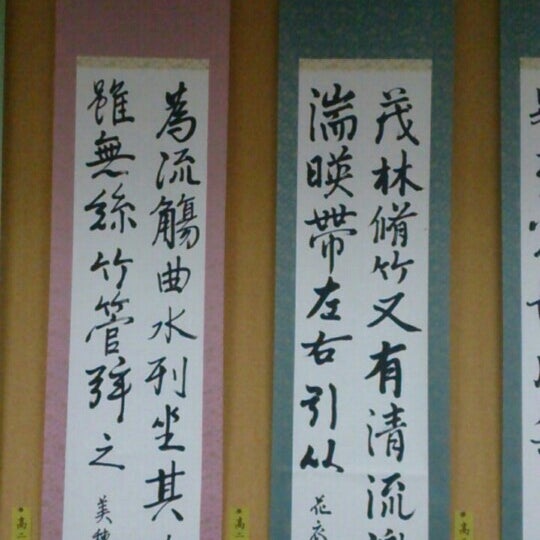 茂林脩竹又有清流
湍暎帶左右引以
花
為流觴曲水列坐其
雖無絲竹管弦之
美穂
高二
高二